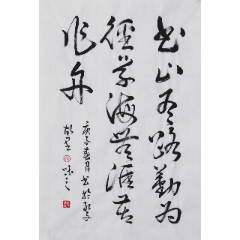 书山有路勤为
径学海无涯苦
作舟
庚子春月书於北京